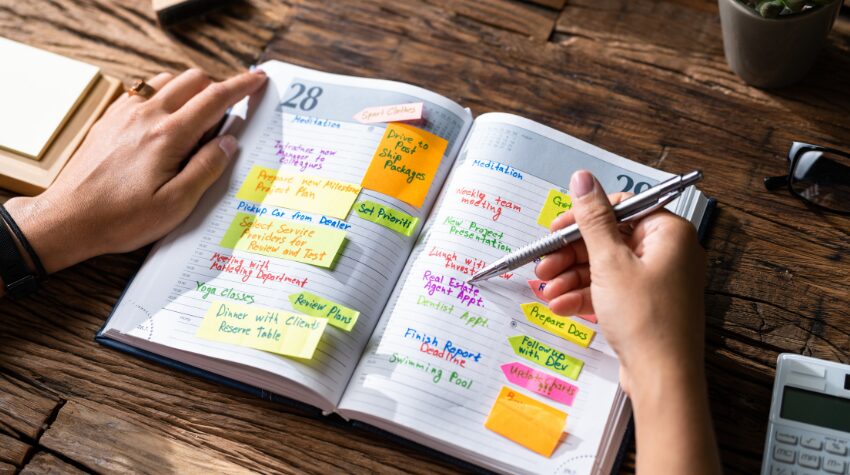 28
Sport Clothes
Meditation
Introduce new
Manager to
Colleagues
Drive to
Post
Ship
Packages
Prepare new Milestone
Project Plan
Set Prioriti
Pickup Car from Dealer
Select Service
Providers for
Review and Test
Meeting with
Marketing Department
Yoga Classes
Review Plans
Dinner with Clients
Reserve Table
29
Meditation
Weekly team
meeting
Get
New Project
Presentation
Lunch with
Real Estate
Agent Appt.
Dentist Appt.
Prepare Docs
Finish Report
Deadline
Follow up
with Dev
Swimming Pool
Update